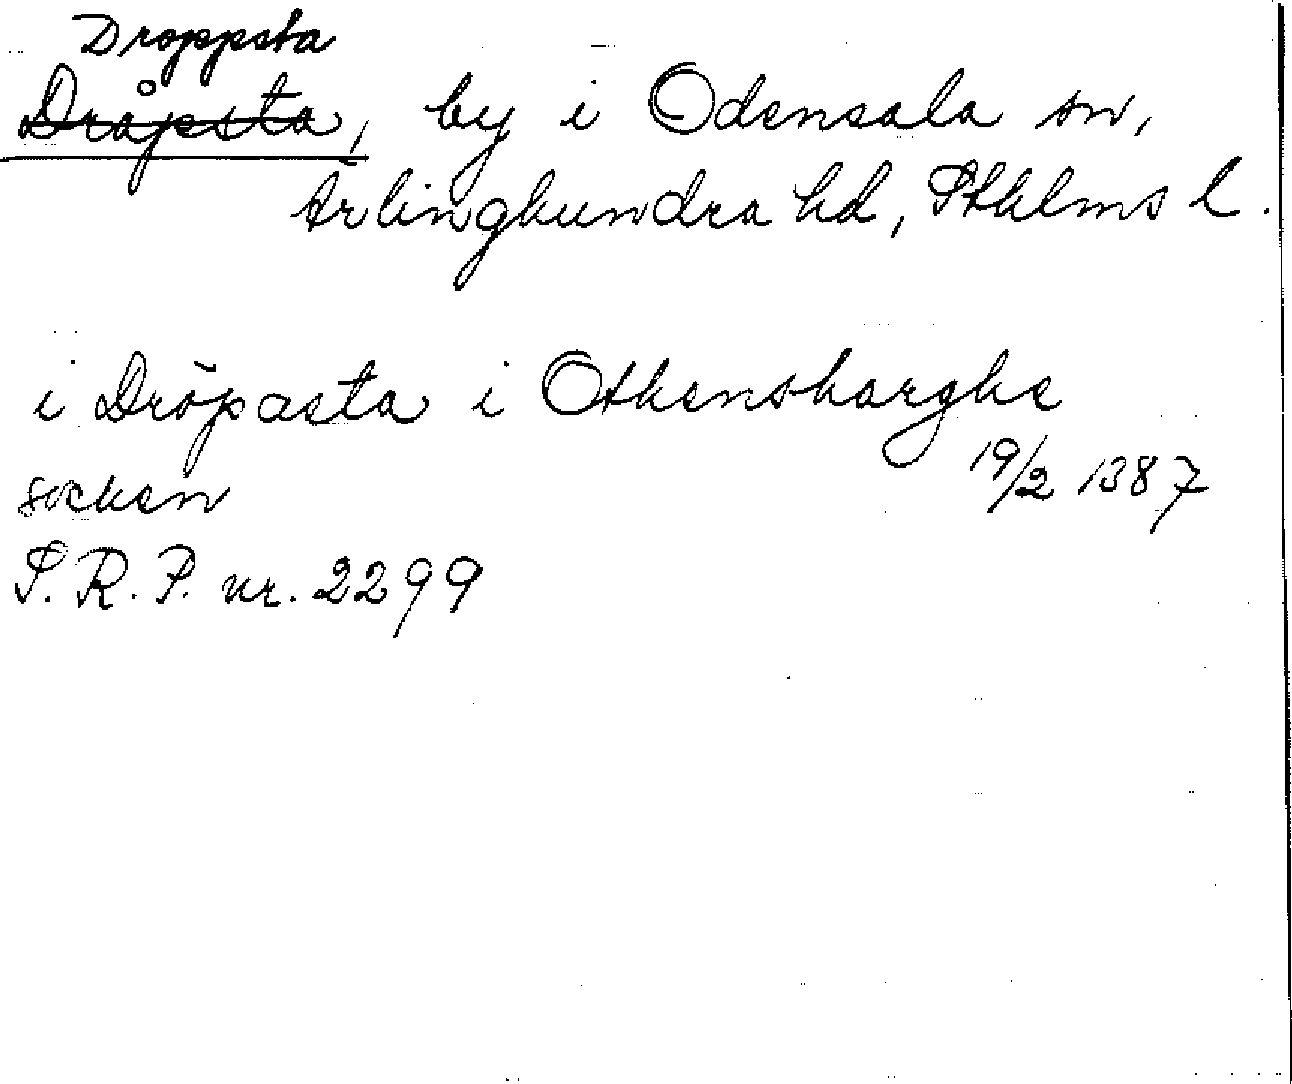 Droppsta
Dråpsta, by i Odensala sn,
Ärlinghundra hd, Sthlms l.
i Dröpasta i Othensharghe
19/2 1387
socken
S. R. P. nr. 2299